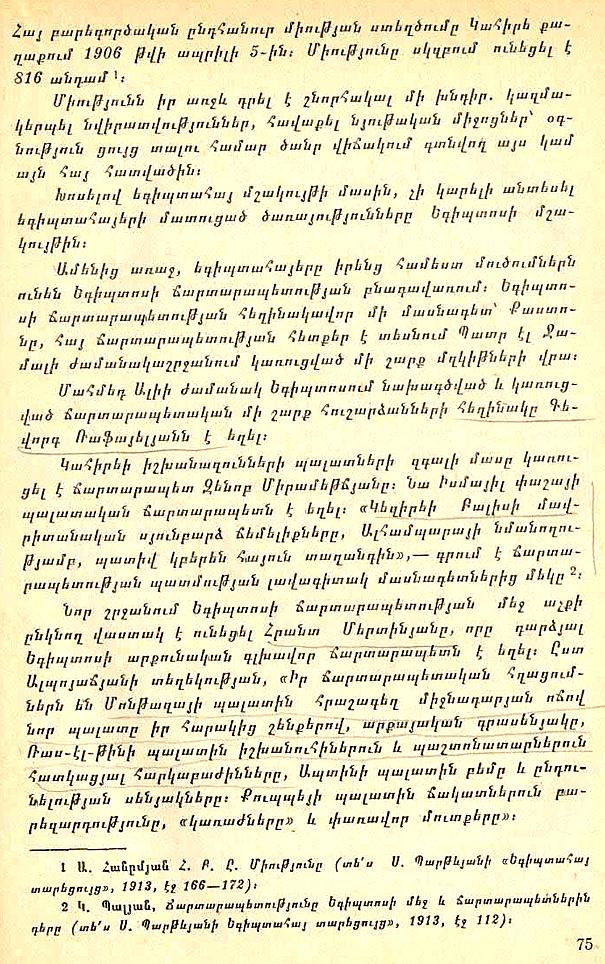 Հայ բարեգործական ընդհանուր միության ստեղծումը Կահիրե քա-
ղաքում 1906 թվի ապրիլի 5-ին։ Միությունը սկզբում ունեցել է
816 անդամ ¹։
Միությունն իր առջև դրել է շնորհակալ մի խնդիր. կազմա-
կերպել նվիրատվություններ, հավաքել նյութական միջոցներ՝ օգ-
նություն ցույց տալու համար ծանր վիճակում գտնվող այս կամ
այն հայ հատվածին։
Խոսելով եգիպտահայ մշակույթի մասին, չի կարելի անտեսել
եգիպտահայերի մատուցած ծառայությունները Եգիպտոսի մշա-
կույթին։
Ամենից առաջ, եգիպտահայերը իրենց համեստ մուծումներն
ունեն Եգիպտոսի ճարտարապետության բնագավառում։ Եգիպտո-
սի ճարտարապետության հեղինակավոր մի մասնագետ՝ Քաստո-
նը, հայ ճարտարապետության հետքեր է տեսնում Պատր էլ Ջա-
մալի ժամանակաշրջանում կառուցված մի շարք մզկիթների վրա։
Մահմեդ Ալիի ժամանակ Եգիպտոսում նախագծված և կառուց-
ված ճարտարապետական մի շարք հուշարձանների հեղինակը Գե-
վորգ Ռաֆայելյանն է եղել։
Կահիրեի իշխանազունների պալատների զգալի մասը կառու-
ցել է ճարտարապետ Զենոբ Միրամեթճյանը։ Նա Իսմայիլ փաշայի
պալատական ճարտարապետն է եղել։ «Կեզիրեի Բալիսի մավ-
րիտանական սյունբարձ ճեմելիքները, Ալհամպարայի նմանողու-
թյամբ, պատիվ կբերեն հայուն տաղանդին»,— գրում է ճարտա-
րապետության պատմության լավագիտակ մասնագետներից մեկը ²։
Նոր շրջանում Եգիպտոսի ճարտարապետության մեջ աչքի
ընկնող վաստակ է ունեցել Հրանտ Մերտինյանը, որը դարձյալ
Եգիպտոսի արքունական գլխավոր ճարտարապետն է եղել։ Ըստ
Ալպոյաճյանի տեղեկության, «Իր ճարտարապետական հղացում-
ներն են Մոնթազայի պալատին հրաշագեղ միջնադարյան ոճով
նոր պալատը իր հարակից շենքերով, արքայական գրասենյակը,
Ռաս-էլ-Թինի պալատին իշխանուհիներուն և պաշտոնատարներուն
հատկացյալ հարկաբաժինները, Ապտինի պալատին բեմը և ընդու-
նելության սենյակները։ Քուպպեյի պալատին ճակատներուն բա-
րեզարդությունը, «կառաժները» և փառավոր մուտքերը»։
1 Ա. Հանըմյան Հ. Բ. Ը. Միությունը (տե՛ս Ս. Պարթևյանի «Եգիպտահայ
տարեցույց», 1913, էջ 166—172)։
2 Կ. Պալյան, Ճարտարապետությունը Եգիպտոսի մեջ և ճարտարապետներին
դերը (տե՛ս Ս. Պարթևյանի Եգիպտահայ տարեցույց», 1913, էջ 112)։
75